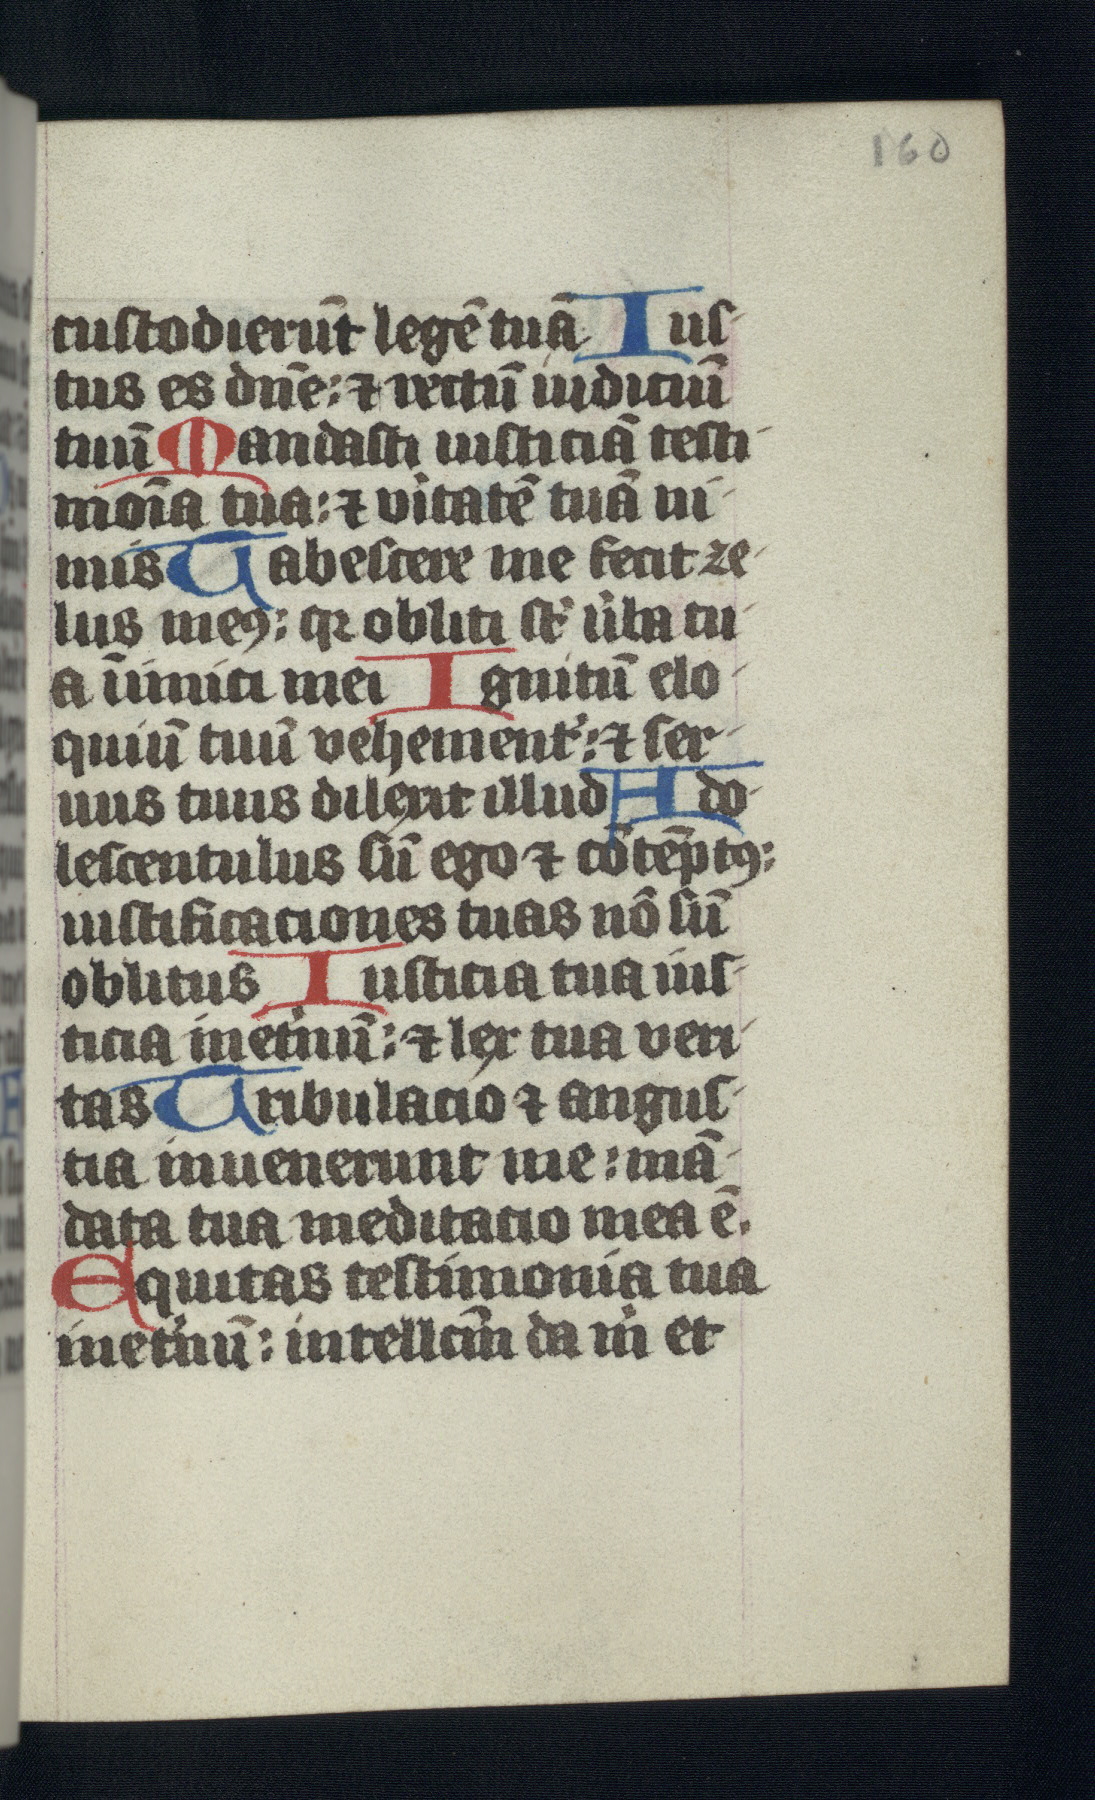 160
custodierūt legē tuā Ius-
tus es dn̄e: ⁊ rectū iudiciū
tuū Mandasti iusticiā testi-
moīa tua: ⁊ v̓itatē tuā ni-
mis Tabescere me fecit ze-
lus meꝰ: qꝛ obliti st̓ ūba tu-
a īimici mei Ignitū elo-
quiū tuū vehement̓: ⁊ ser-
uus tuus dilexit illud Ado-
lescentulus sū ego ⁊ cōtēptꝰ:
iustificaciones tuas nō sū
oblitus Iusticia tua ius-
ticia inet̓nū: ⁊ lex tua veri-
tas Tribulacio ⁊ angus-
tia inuenerunt me: mā-
data tua meditacio mea ē.
Equitas testimonia tua
inet̓nū: intellcm̄ da m̓ et